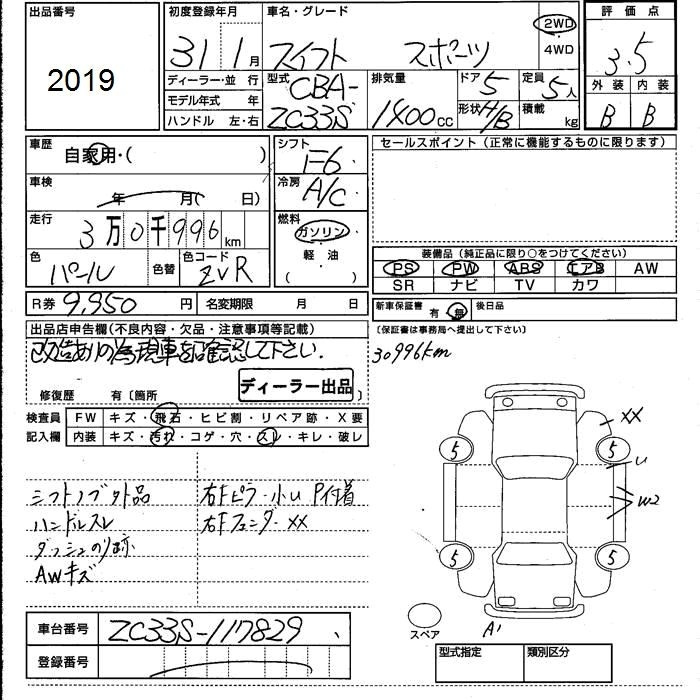 出品番号
2019
初度登録年月
31 1月
車名・グレード
スイフト スポーツ
2WD
・
4WD
評価点
3.5
外装 内装
B B
ディーラー・並行
モデル年式 年
ハンドル 左・右
型式
CBA-
ZC33S
排気量
1400cc
ドア
5
形状
H/B
定員
5人
積載
kg
車歴
自家用・( )
シフト
F6
セールスポイント(正常に機能するものに限ります)
車検
年 月( 日)
冷房
A/C
走行
3万0千996km
燃料
ガソリン
・
軽・油
( )
色
パール
色替
色コード
ZVR
装備品(純正品に限り○をつけてください)
PS PW ABS エアB AW
SR ナビ TV カワ
R券 9,950円
名変期限 月 日
新車保証書 有・無
後日品
(保証書は事務局へ提出して下さい)
出品店申告欄(不良内容・欠品・注意事項等記載)
改造ありの為現車を確認して下さい.
30996km
修復歴 有〔箇所
ディーラー出品
検査員
記入欄
FW キズ・飛石・ヒビ割・リペア跡・X要
内装 キズ・汚れ・コゲ・穴・スレ・キレ・破レ
シフトノブ外品
ハンドルスレ
ダッシュのり跡
AWキズ
右Fピラー小U P付着
右Fフェンダー XX
XX
5 5
U
W2
5 5
スペア
A1
車台番号 ZC33S-117829
登録番号
型式指定 類別区分